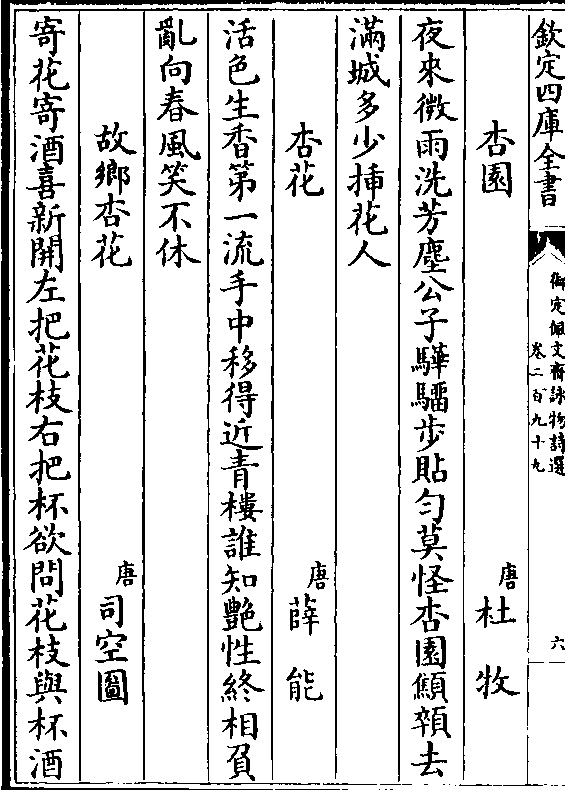 欽定四庫全書
御定佩文齋詠物詩選
卷二百九十九
六
杏園
唐 杜牧
夜來微雨洗芳塵公子驊騮步貼勻莫怪杏園顦顇去
滿城多少揷花人
杏花
唐 薛能
活色生香第一流手中移得近青樓誰知艷性終相負
亂向春風笑不休
故鄉杏花
唐 司空圖
寄花寄酒喜新開左把花枝右把杯欲問花枝與杯酒